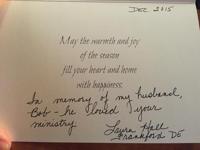 Dec 2015
May the warmth and joy
of the season
fill your heart and home
with happiness.
In memory of my husband,
Bob - he loved your
ministry
Laura Hall
Frankford DE